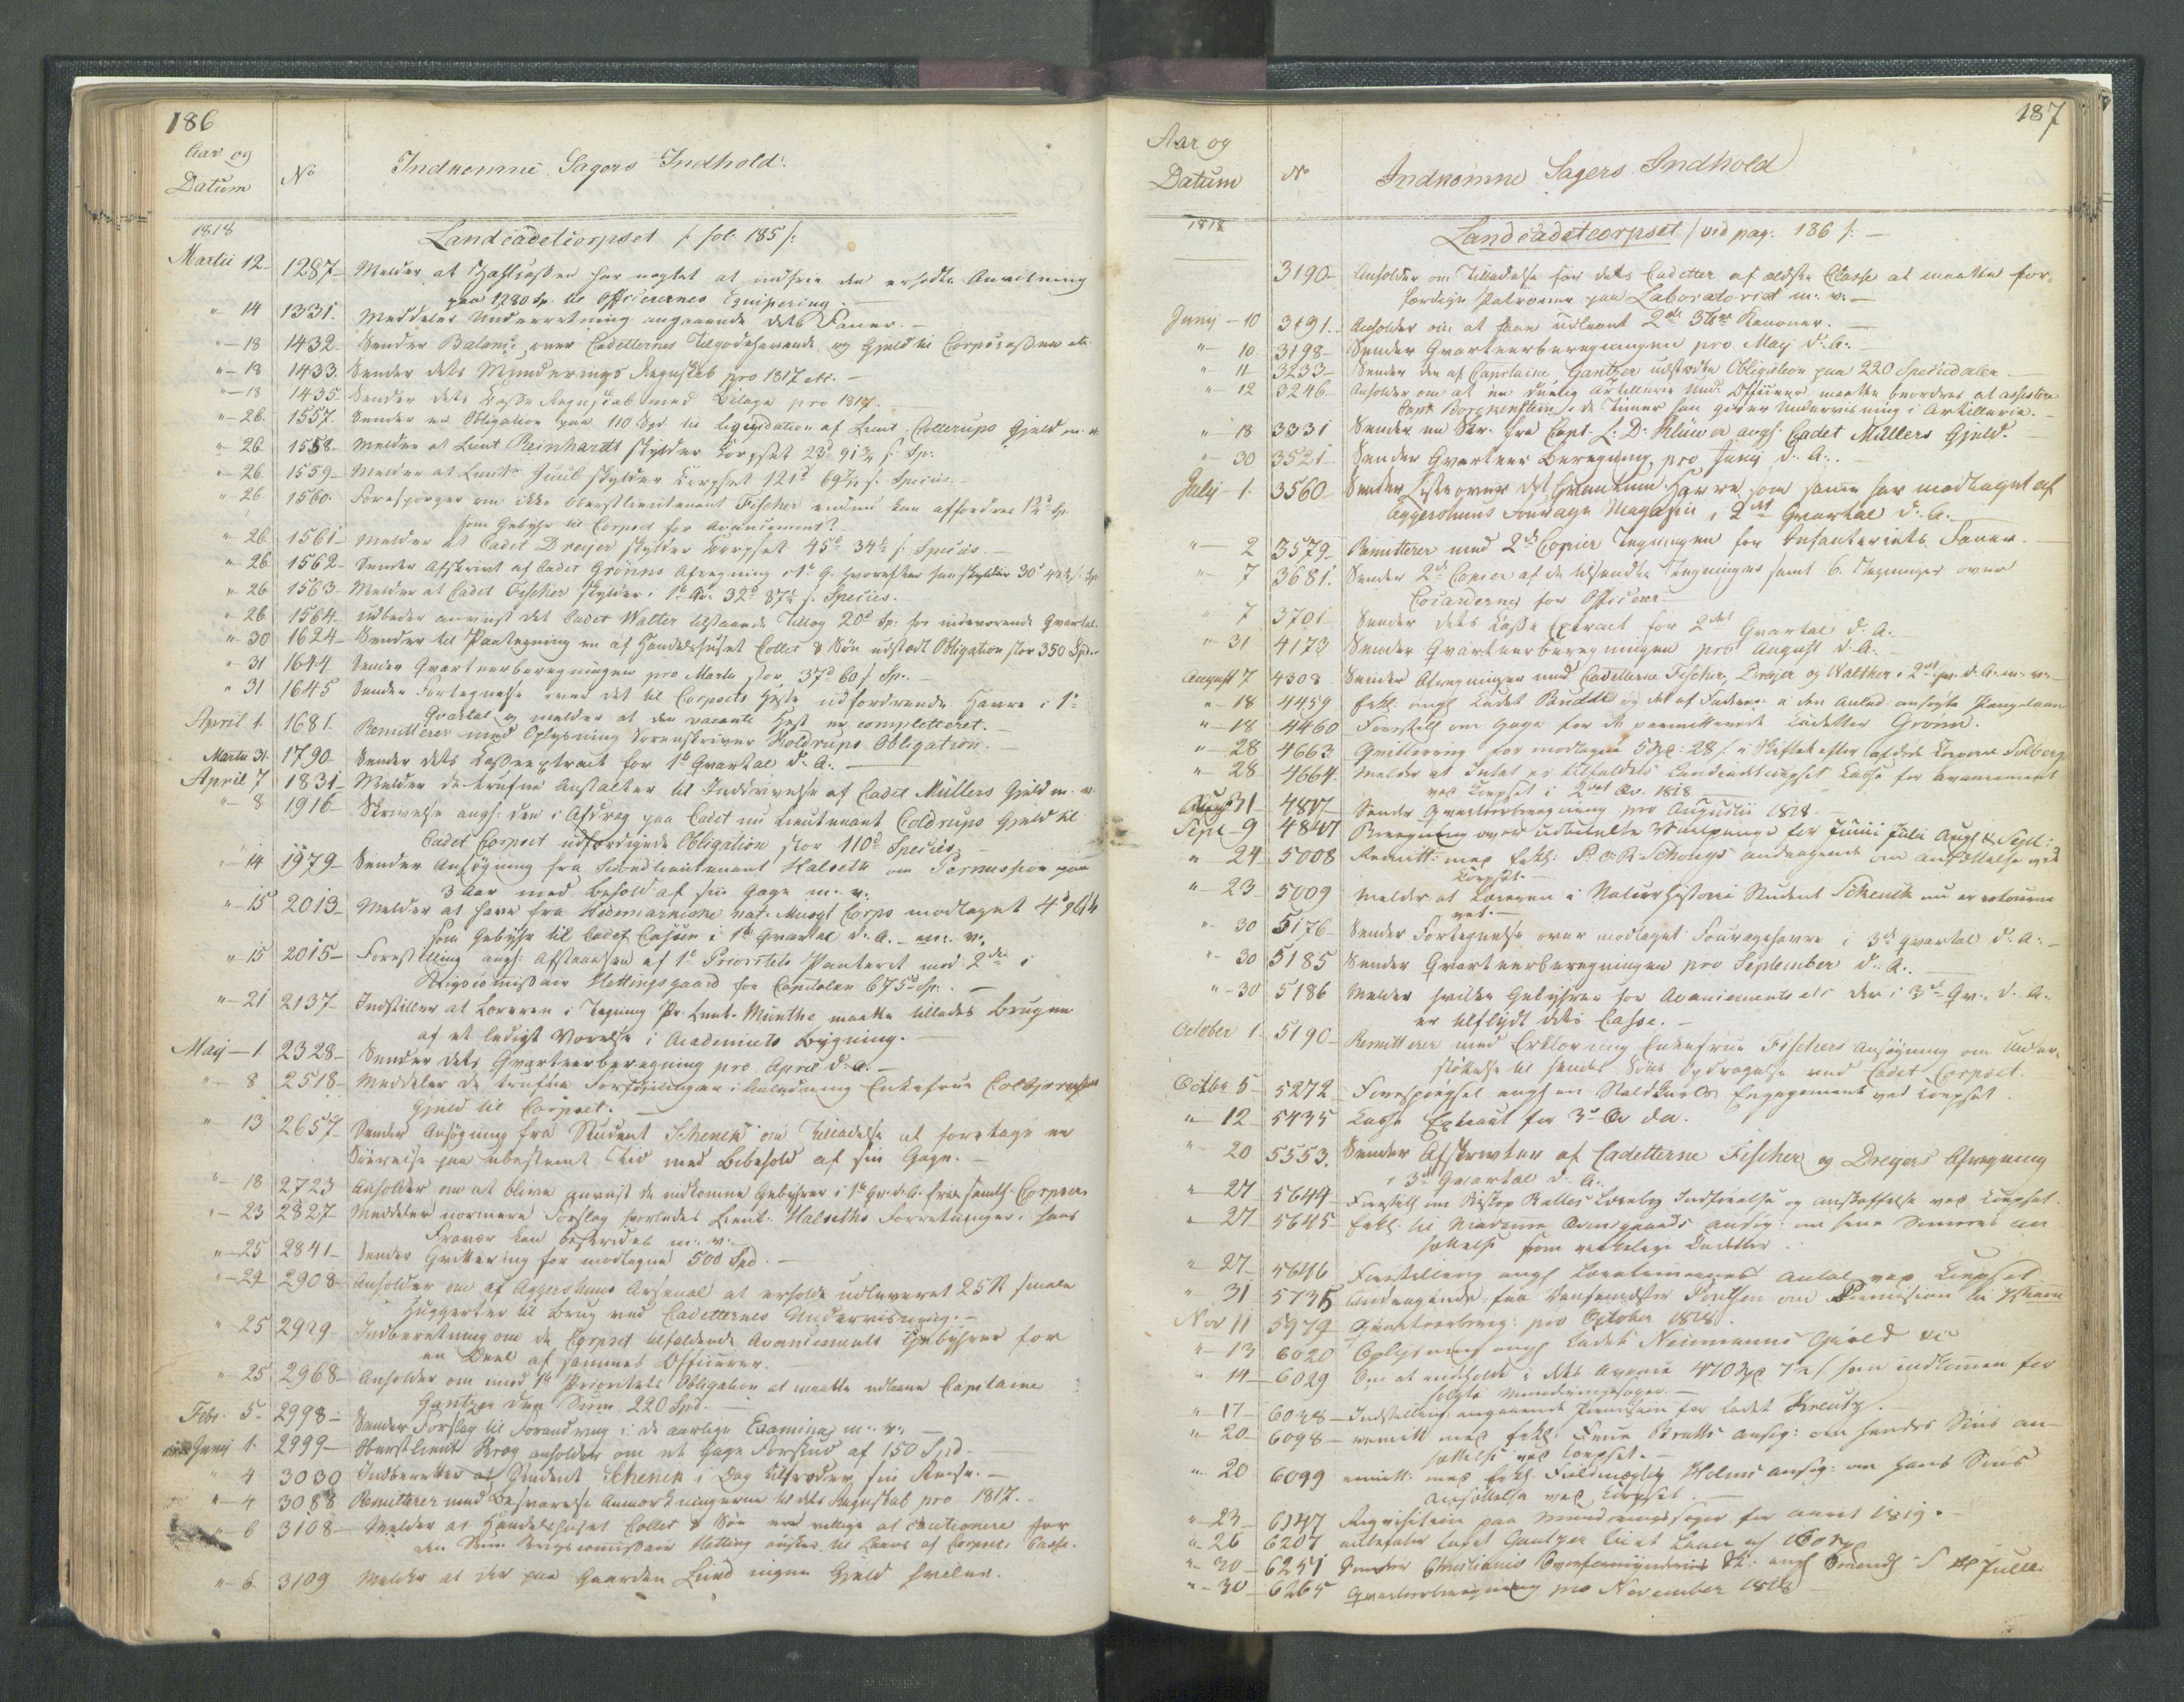 186
Aar og
Datum
No
Indkomne Sagers Indhold.
1818
Landcadetcorpset /: fol. 185 /:
Martii 12- 1287- Melder at Zahlcassen har nægtet at indfrie den erholdte Anvisning
paa 1780 Sp. til Officierernes Equipering. -
"- 14 1331. Meddeler Underretning angaaende dets Faner. -
"- 18 1432- Sender Balance over Cadetternes Tilgodehavende og Gjeld til Corpscassen etc.
"- 18 1433. Sender dets Munderings Regnskab pro 1817 etc. -
"- 18 1435- Sender dets Casse Regnskab med Bilage pro 1817.
"- 26. 1557. Sender en Obligation paa 110 Spd. til liqvidation af Lieut. Collerups Gjeld m. v.
"- 26 1558- Melder at Lieut Reinhardt skylder Corpset 23d 91¾ s. Sp:
"- 26 1559- Melder at Lieutn Juul skylder Corpset 121d 69½ s. Species. -
"- 26 1560. Forespørger om ikke Oberstlieutenant Fischer endnu kan affordres 12d Sp.
som Gebyhr til Corpset for Avancement?
"- 26 1561- Melder at Cadet Dreyer skylder Corpset 45d 34½ s. Species. -
"- 26. 1562- Sender Afskrivt af Cadet Grønns Afregning i 1ste Q. hvorefter han skylder 30d 42½ s. Sp.
"- 26 1563- Melder at Cadet Fischer skylder i 1ste Qv. 32d 87½ s. Species.
"- 26 1564- udbeder anviist det Cadet Walter tilstaaede Tillæg 20d Sp: for indeværende Qvartal.
"- 30 1624- Sender til Paategning en af Handelshuset Collet & Søn udstædt Obligation stor 350 Spd.
"- 31 1644 Sender Qvarteerberegningen pro Martii stor 37d 60 s Sp. -
"- 31 1645 Sender Fortegnelse over det til Corpsets Heste udfordrende Havre i 1ste
Qvartal og melder at den vacante Hest er completteret. -
April 1. 1681. Remitterer med Oplysning Sorenskriver Koldrups Obligation. -
Martii 31. 1790- Sender dets Casseextract for 1ste Qvartal d. A. -
April 7 1831- Melder de trufne Anstalter til Inddrivelse af Cadet Müllers Gjeld m. v.
"- 8 1916- Skrivelse angl: den i Afdrag paa Cadet nu Lieutenant Coldrups Gjeld til
Cadet Corpset udfærdigede Obligation stor 110d Species. -
"- 14 1979- Sender Ansøgning fra Secondlieutenant Halseth om Permission paa
3 Aar med Behold af sin Gage m. v.
"- 15 2013- Melder at have fra Hedemarkiske nat: Musqt Corps modtaget 4d
som Gebyhr til Cadet Cassen i 1ste Qvartal d. A. - m. v.
"- 15 2015- Forestilling angl: Afstaaelsen af 1ste Prioritets Panteret mod 2den i
Krigscommissair Hettings gaard for Capitalen 675d Sp. -
"- 21 2137- Indstiller at Læreren i Tegning Pr. Lieut. Munthe maatte tillades Brugen
af et ledigt Værelse i Academiets Bygning. -
Maij - 1. 2328- Sender dets Qvarteerberegning pro April d. A. -
"- 8 2518- Meddeler de trufne Forføininger i Anledning Enkefrue Colbjørnsens
Gjeld til Corpset. -
"- 13 2657- Sender Ansøgning fra Student Schenck om Tilladelse at foretage en
Søereise paa ubestemt Tid med Bibehold af sin Gage. -
"- 18 2723 Anholder om at blive anviist de indkomne Gebyhrer i 1ste Qv. d. A. fra samtl. Corpser.
"- 23 2827 Meddeler nærmere Forslag hvorledes Lieut. Halseths Forretninger i hans
Fravær kan besørges m. v. -
"- 25 2841- Sender Qvittering for modtagne 500 Spd. -
"- 29 2908- Anholder om af Aggershuus Arsenal at erholde udleveret 25 St smale
Huggerter til Brug ved Cadetternes Underviisning. -
"- 25 2929- Indberetning om de Corpset tilfaldende Avancements Gebyhrer for
en Deel af sammes Officierer.
"- 25 2968- Anholder om imod 1ste Prioritets Obligation at maatte udlaane Capitaine
Gantzer den Sum 220 Spd. -
Febr. 5. 2998- Sender Forslag til Forandring i de aarlige Examina m. v. -
Junij 1. 2999- Oberstlieut Krog anholder om et Gage Forskud af 150 Spd.
" 4 3030 Indberetter at Student Schenck i Dag tiltræder sin Reise. -
"- 4 3088 Remitterer med Besvarelse Anmærkningerne til dets Regnskab pro 1817. -
"- 6 3108- Melder at Handelshuset Collet & Søn ere villige at cautionere for
den Sum Krigscommissair Hetting ønsker til Laans af Corpsets Casse.
"- 6. 3109 Melder at der paa Gaarden Lund ingen Gjeld hviler.
187
Aar og
Datum
No
Indkomne Sagers Indhold
1818
Landcadetcorpset /: vid pag. 186 /: -
3190- Anholder om Tilladelse for dets Cadetter af ældste Classe at maatte for-
færdige Patroner paa Laboratoriet m. v. -
Junij - 10 3191. Anholder om at faae udlaant 2de 3 tt Kanoner. -
"- 10 3198- Sender Qvarteerberegningen pro Maij d. A. -
"- 11 3233- Sender den af Capitaine Gantzer udstædte Obligation paa 220 Speciedaler. -
"- 12 3246 Anholder om at en duelig Artillerie Und. Officeer maatte beordres at assistere
Capt Borgenstein i de Timer han giver Underviisning i Artillerie. -
"- 18 3331 Sender en Skr. fra Capt. L. D. Klüwer angl. Cadet Müllers Gjeld. -
"- 30 3521- Sender Qvarteer Beregning pro Junij d. A. -
Julij - 1. 3560- Sender Liste over det Qvantum Havre som samme har modtaget af
Aggershuus Fourage Magazin i 2det Qvartal d. A. -
"- 2 3579- Remitterer med 2de Copier Tegningen for Infanteriets Faner. -
"- 7 3681. Sender 2de Copier af de tilsendte Tegninger samt 6 Tegninger over
Cocarderne for Officerer
"- 7 3701 Sender dets Casse Extract for 2det Qvartal d. A. -
"- 31 4173 Sender Qvarteerberegningen pro August d. A. -
August 7 4308 Sender Afregninger med Cadetterne Fischer, Dreyer og Walther i 2det Qv. d. A. m. v. -
"- 18 4459.
"- 18 4460 Forestill om Gage for de permitterede Cadetter Grønn.
"- 28 4663 Qvittering for modtagne
"- 28 4664. Melder at Intet er tilfaldet Landcadetcorpset Casse for Avancement
ved Corpset i 2det Qv. 1818
Aug 31 4817- Sender Qvarteerberegning pro Augustii 1818. -
Sept - 9 4847
"- 24 5008 om ansættelse ved
Corpset. -
"- 23 5009 Melder at Læreren i Naturhistorie Student Schenck nu er retourne-
ret. -
"- 30 5176- Sender Fortegnelse over modtaget Fouragehavre i 3die Qvartal d. A. -
"- 30 5185 Sender Qvarteerberegningen pro September d. A. -
"- 30 5186 Melder hvilke Gebyhrer for Avancements etc der i 3die Qv. d. A.
er tilflydt dets Casse. -
October 1. 5190- Remitterer med Erklæring Enkefrue Fischers Ansøgning om Under-
støttelse til hendes Søns Opdragelse ved Cadet Corpset.
Octbr 5- 5272 Forespørgsel angl en Staldkarls Engagement ved Corpset.
"- 12 5435 Casse Extract for 3die Qv d. A.
"- 20 5553. Sender Afskrivter af Cadetterne Fischer og Dreyers Afregning
i 3die Qvartal d. A. -
"- 27 5644- Forestill om Biskop Balles Lærebog Indførelse og anskaffelse ved Corpset.
"- 27 5645- Erkl. til Madame ansøg: om sine Sønners an-
sættelse som virkelige Cadetter.
"- 27 5646 Forestilling angl Antal ved Corpset
"- 31 5735 Andragende fra om Permission
Nov 11 5979 Qvarteerbereg: pro October 1818.
"- 13 6020 Oplysning angl Cadet Neumanns Gield etc
"- 14- 6029 Om at erholde som indkommen for
solgte Munderingssager. -
"- 17- 6048- Indstilling angaaende Permission for Cadet Kreutz. -
"- 20- 6098- remitt med Erkl: Frue Bratts ansøg: om hendes Søns an-
sættelse ved Corpset. -
"- 20 6099 remitt: med Erkl. Holms ansøg. om hans Søns
ansættelse ved Corpset. -
"- 23- 6147 Reqvisition paa Munderingssager for aaret 1819.
"- 26 6207 anbefaler Capt Gantzer
"- 30- 6251 Sender Christiania
"- 30 6265 Qvarteerberegning pro November 1818